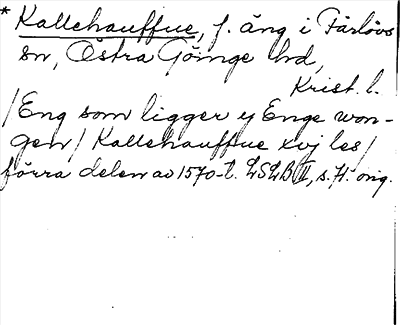 * Kallehauffue, f. äng i Färlövs
sn, Östra Göinge hd,
Krist. l.
/Eng som ligger y Enge won-
gen/ Kallehauffue xvj les/
förra delen av 1570-t. LSLB II, s. 71. orig.